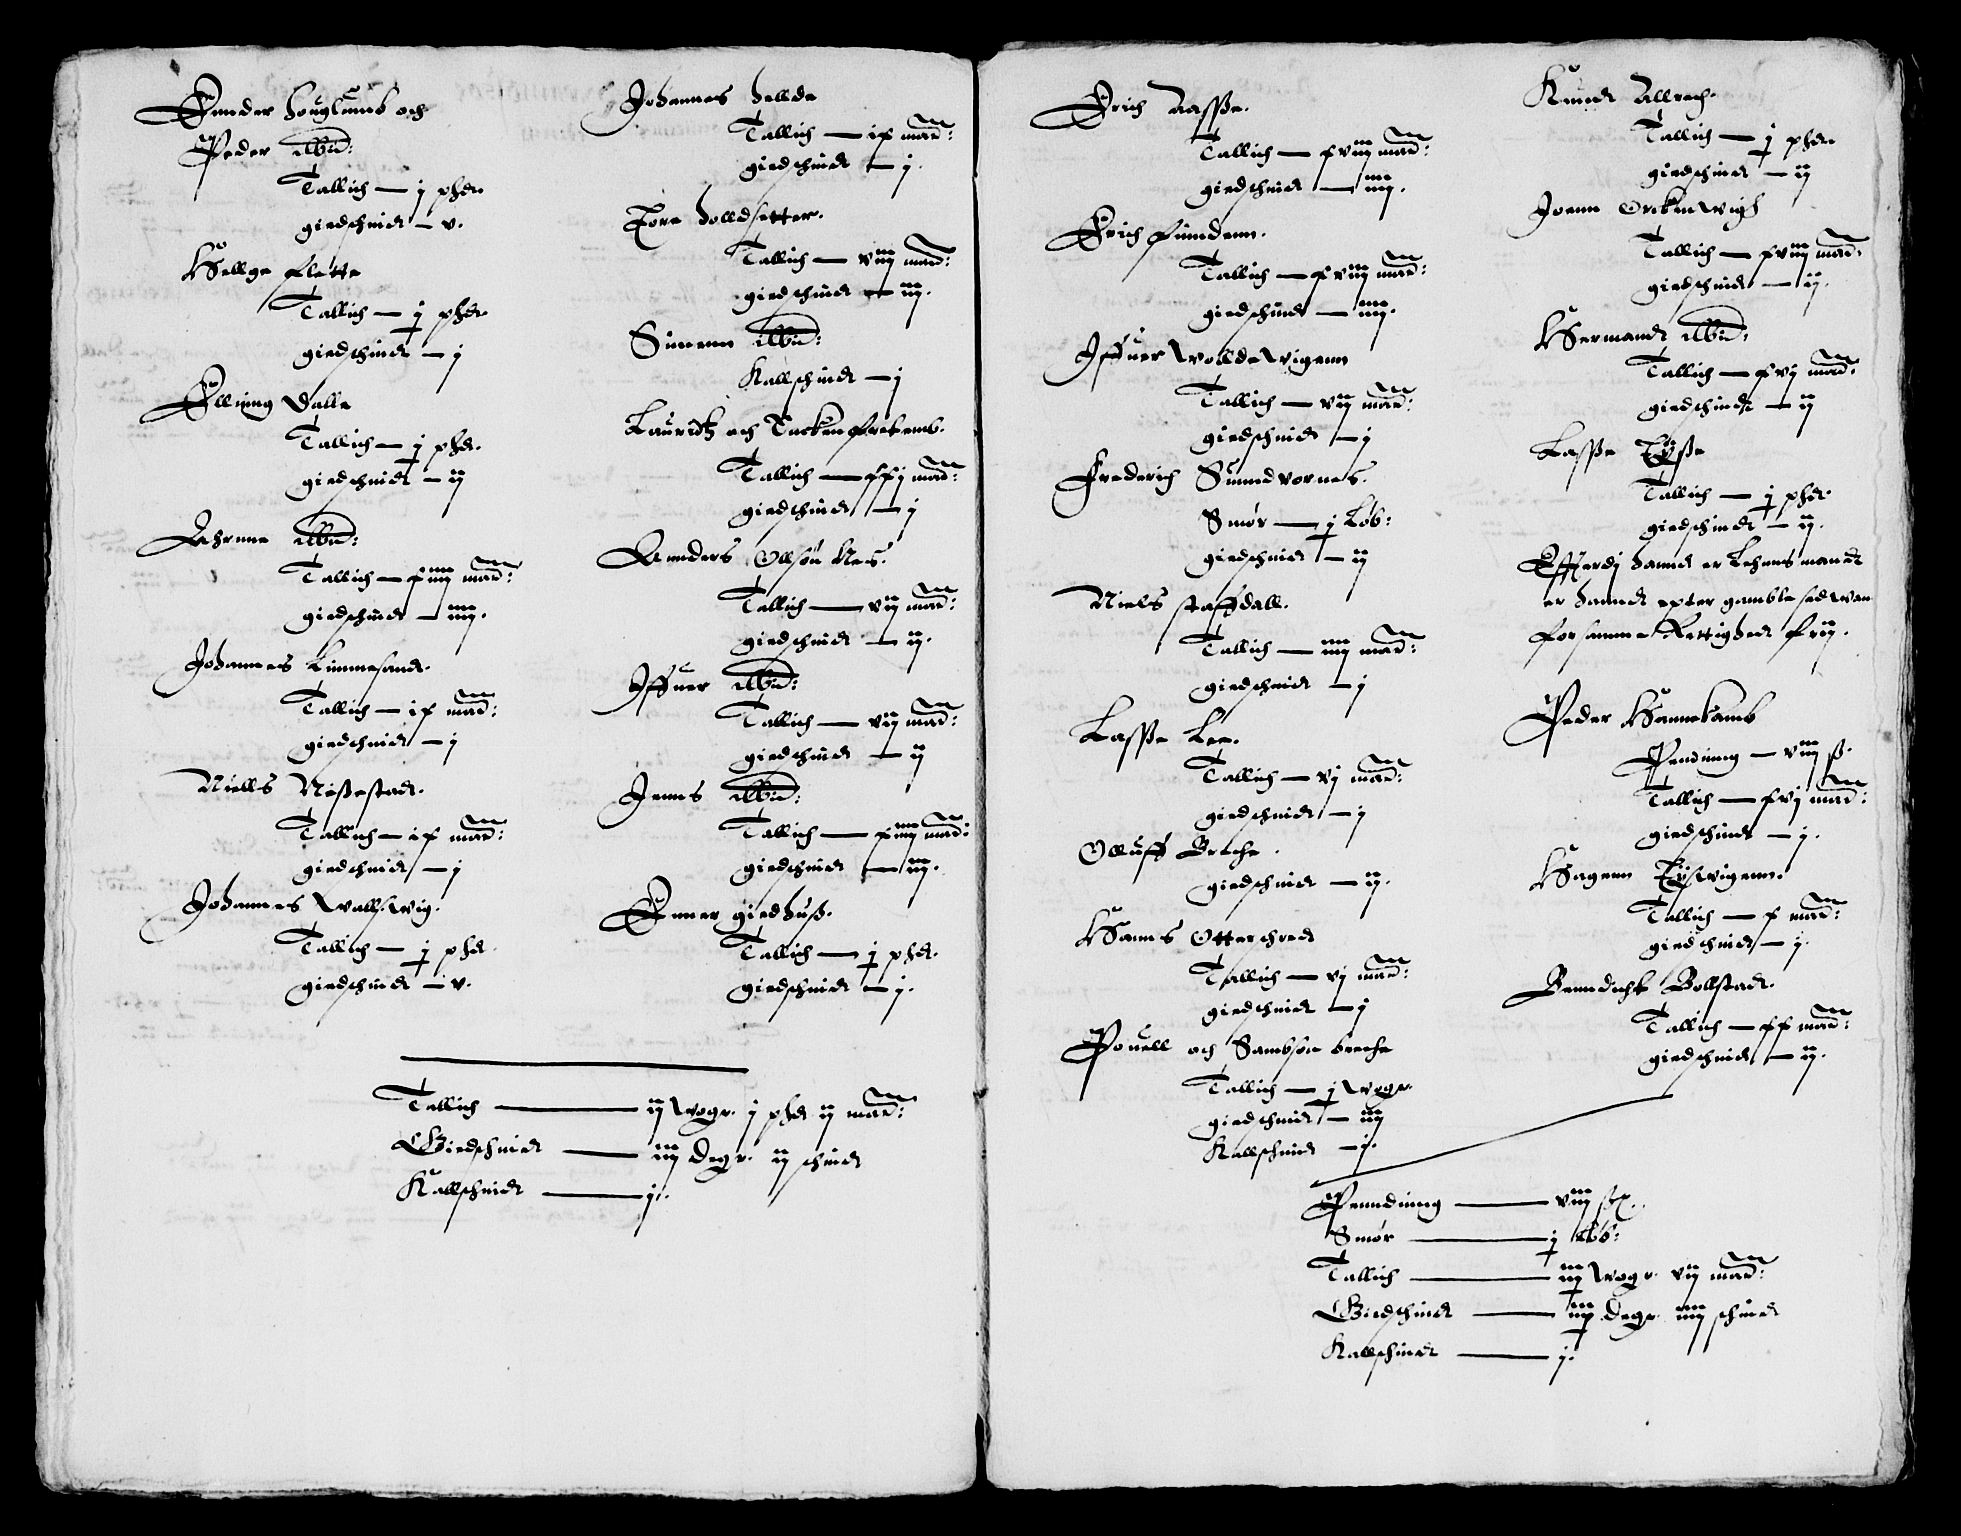 Gunder Houglumb och
Peder ibid:
Tallich — j phd.
giedschind — v.
Hellge flette
Tallich — j phd.
giedschind — j
Elling Dalle
Tallich — j phd.
giedschind — ij
ibid:
Tallich — xiiij mard:
giedschind — iiij.
Johannes Limmesand.
Tallich — ix mard:
giedschind — j
Niells Nißestad.
Tallich — ix mard:
giedschind — j
Johannes Wallswig.
Tallich — j phd.
giedschind — v.
Johannes Hellde
Tallich — ix mard:
giedschind — j.
Tore Holldsetter.
Tallich — viij mard:
giedschind — iij.
Simenn ibid:
Kallschind — j
Lauridtz och Tarken
Tallich — xxj mard:
giedschind — j
Annders Ollsön Nes.
Tallich — vij mard:
giedschind — ij.
Iffuer ibid:
Tallich — vij mard:
giedschind — ij
Jenns ibid:
Tallich — xiiij mard:
giedschind — iij.
Enner giedhuß.
Tallich — j phd.
giedschind — j.
Tallich — ij Wogr. j phd ij mard:
Giedschind — iiij degr. ij schind
Kallschind — j.
Erich Aasße.
Tallich — xviij mard:
giedschind — iiij.
Erich funndenn.
Tallich — xviij mard:
giedschind — iiij.
Iffuer Wolldewigenn
Tallich — vij mard:
giedschind — j
Frederich Sunndvornes.
Smör — j Löb:
giedschind — ij
Niels staffdall.
Tallich — iiij mard:
giedschind — j
Lasße Lee.
Tallich — vj mard:
giedschind — j
Olluff Breche.
giedschind — ij.
Hanns Otterschred
Tallich — vj mard:
giedschind — j
Pouell och Sambson breche
Tallich — j Wogr.
giedschind — iij
Kallschind — j.
Knud Allrech.
Tallich — j phd.
giedschind — ij
Joenn Orckenwigh
Tallich — xviij mard:
giedschind — ij.
Hermand ibid:
Tallich — xvj mard:
giedschind — ij
Lasße Tyße
Tallich — j phd.
giedschind — ij.
Effterdj hannd er Lehensmandt
er hannd epter gamble sedwan
for samme Rettighed frij.
Peder Hannekamb
Penning — viij ß.
Tallich — xvj mard:
giedschind — j.
Hagenn Tyswigenn.
Tallich — x mard:
giedschind — j.
Benndicht Bollstad.
Tallich — xx mard:
giedschind — ij.
Penndinng — viij sk.
Smör — j Löb:
Tallich — iiij Wogr. vij mard:
Giedschind — iiij degr. iiij schind
Kallschind — j.